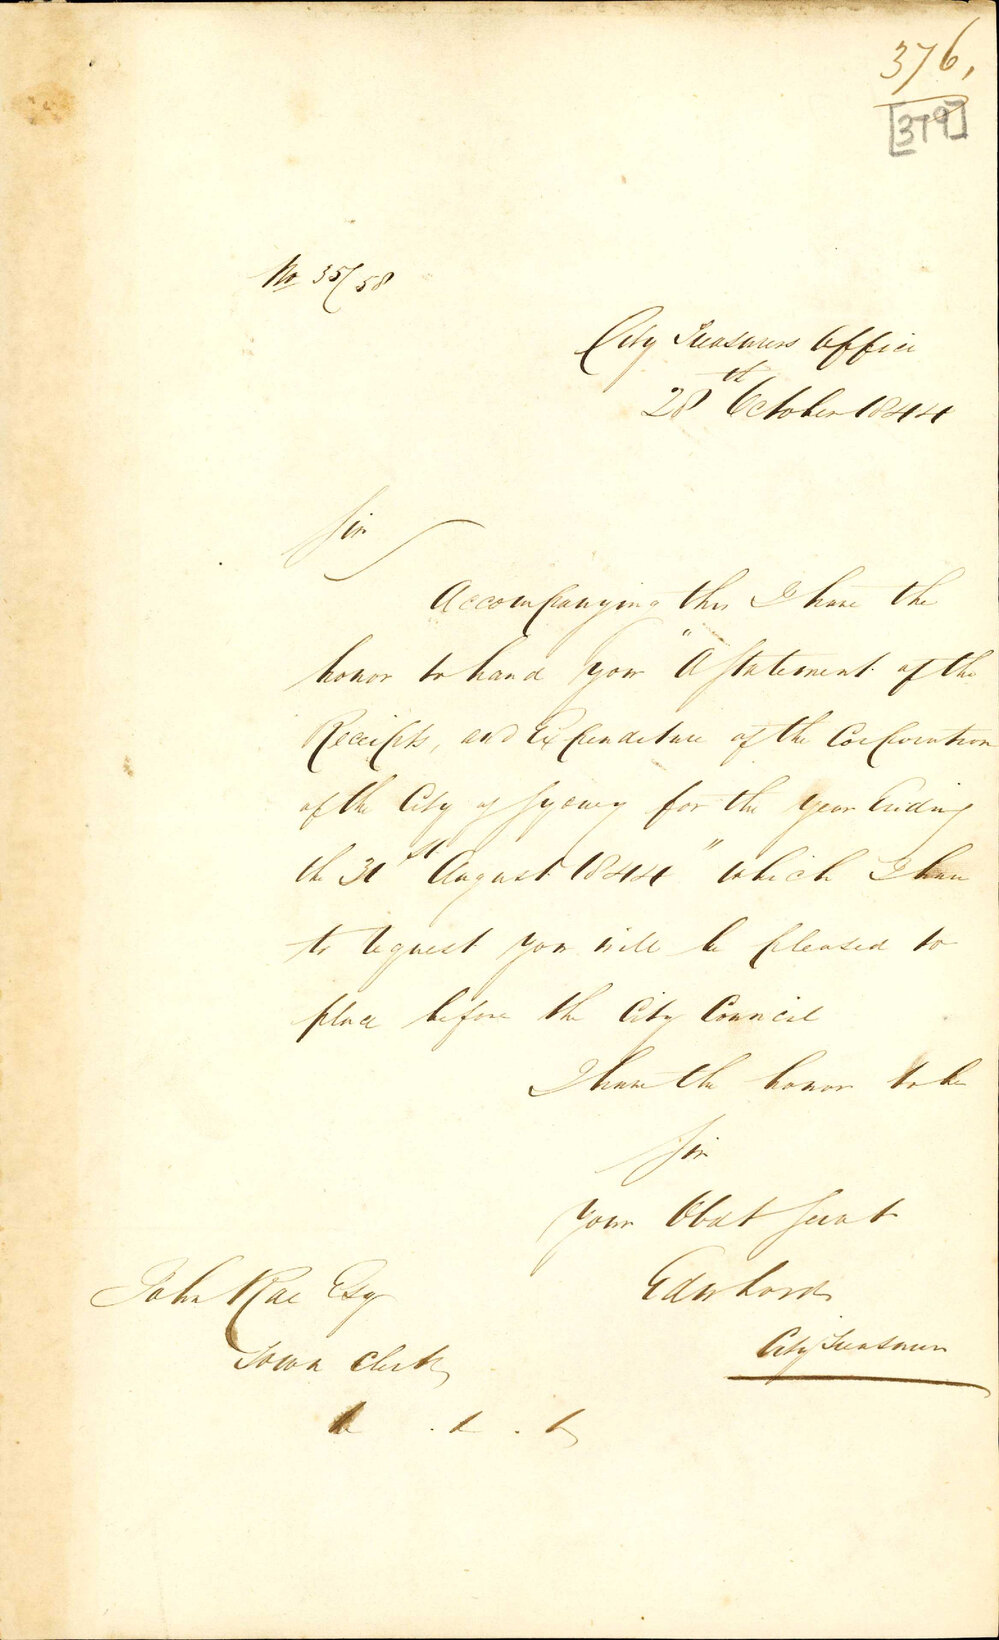 376,
[379]
No 35/58
City Treasurers Office
28th October 1844
Sir
Accompanying this I have the
honor to hand you "A Statement of the
Receipts, and Expenditure of the Corporation
of the City of Sydney for the year Ending
the 31st August 1844" which I have
to request you will be pleased to
place before the City Council
I have the honor to be
Sir
Your Obdt Servt
Edw Lord
City Treasurer
John Rae Esq
Town Clerk